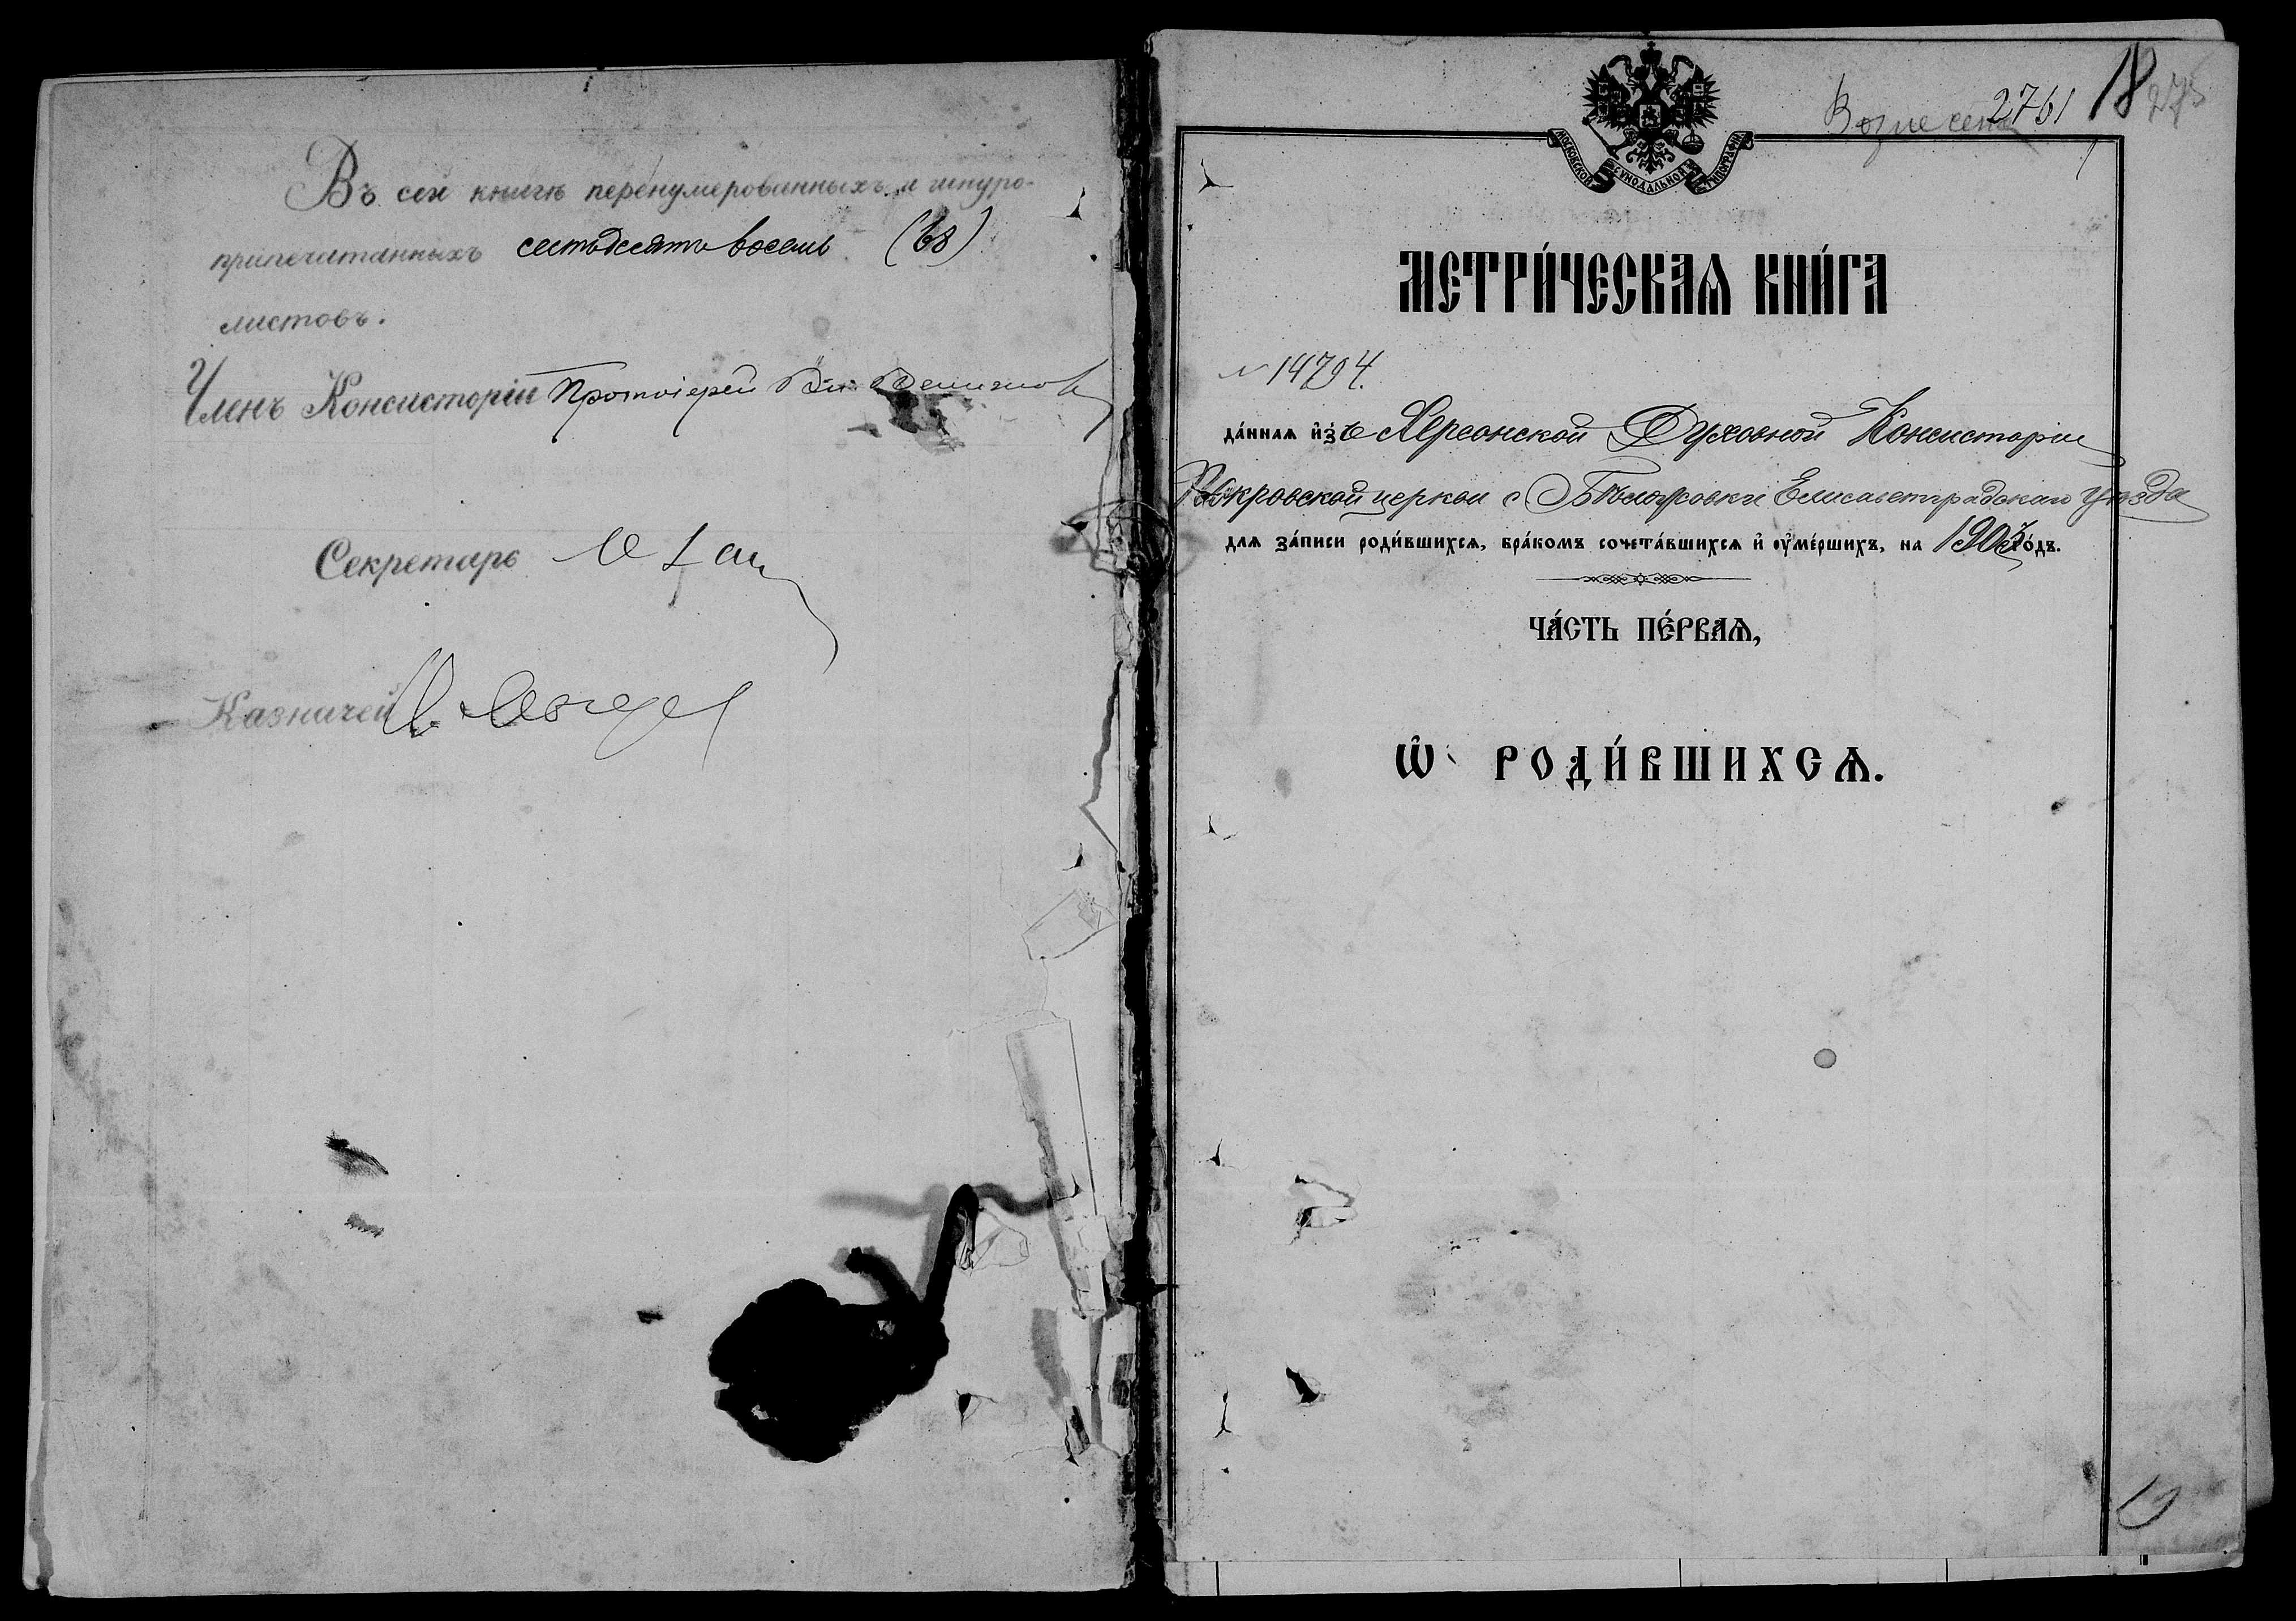 Въ сей книгѣ перенумерованныхъ и шнуро-
припечатанныхъ шестьдесятъ восемь (68)
листовъ.
Членъ Консисторіи Протоіерей
Секретарь
Казначей
2761 18 275
МОСКОВСКОЙ СѴНОДАЛЬНОЙ ТИПОГРАФІИ
МЕТРИ́ЧЕСКАѦ КНИ́ГА
№ 14794.
да́ннаѧ и҆зъ Херсонской Духовной Консисторіи
Покровской церкви с. Елисаветградскаго уѣзда
для за́писи роди́вшихсѧ, бра́комъ сочета́вшихсѧ и҆ ᲂу҆ме́ршихъ, на 1903 го́дъ.
ЧА́СТЬ ПЕ́РВАѦ,
Ѡ҆ РОДИ́ВШИХСѦ.